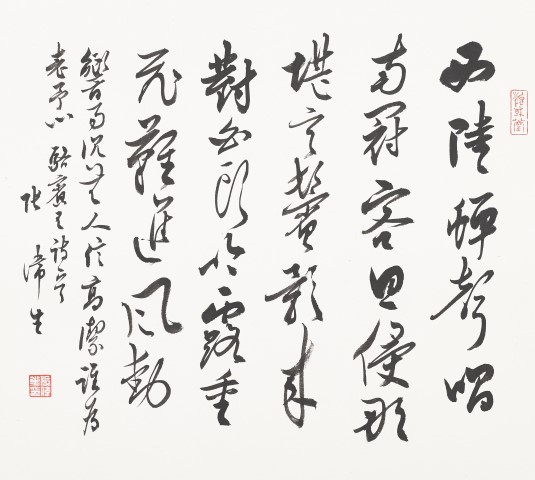 西陸蟬聲唱
南冠客思侵那
堪玄鬢影來
對白頭吟露重
飛難進風動
響易沉無人信高潔誰為
表予心 駱賓王詩
生